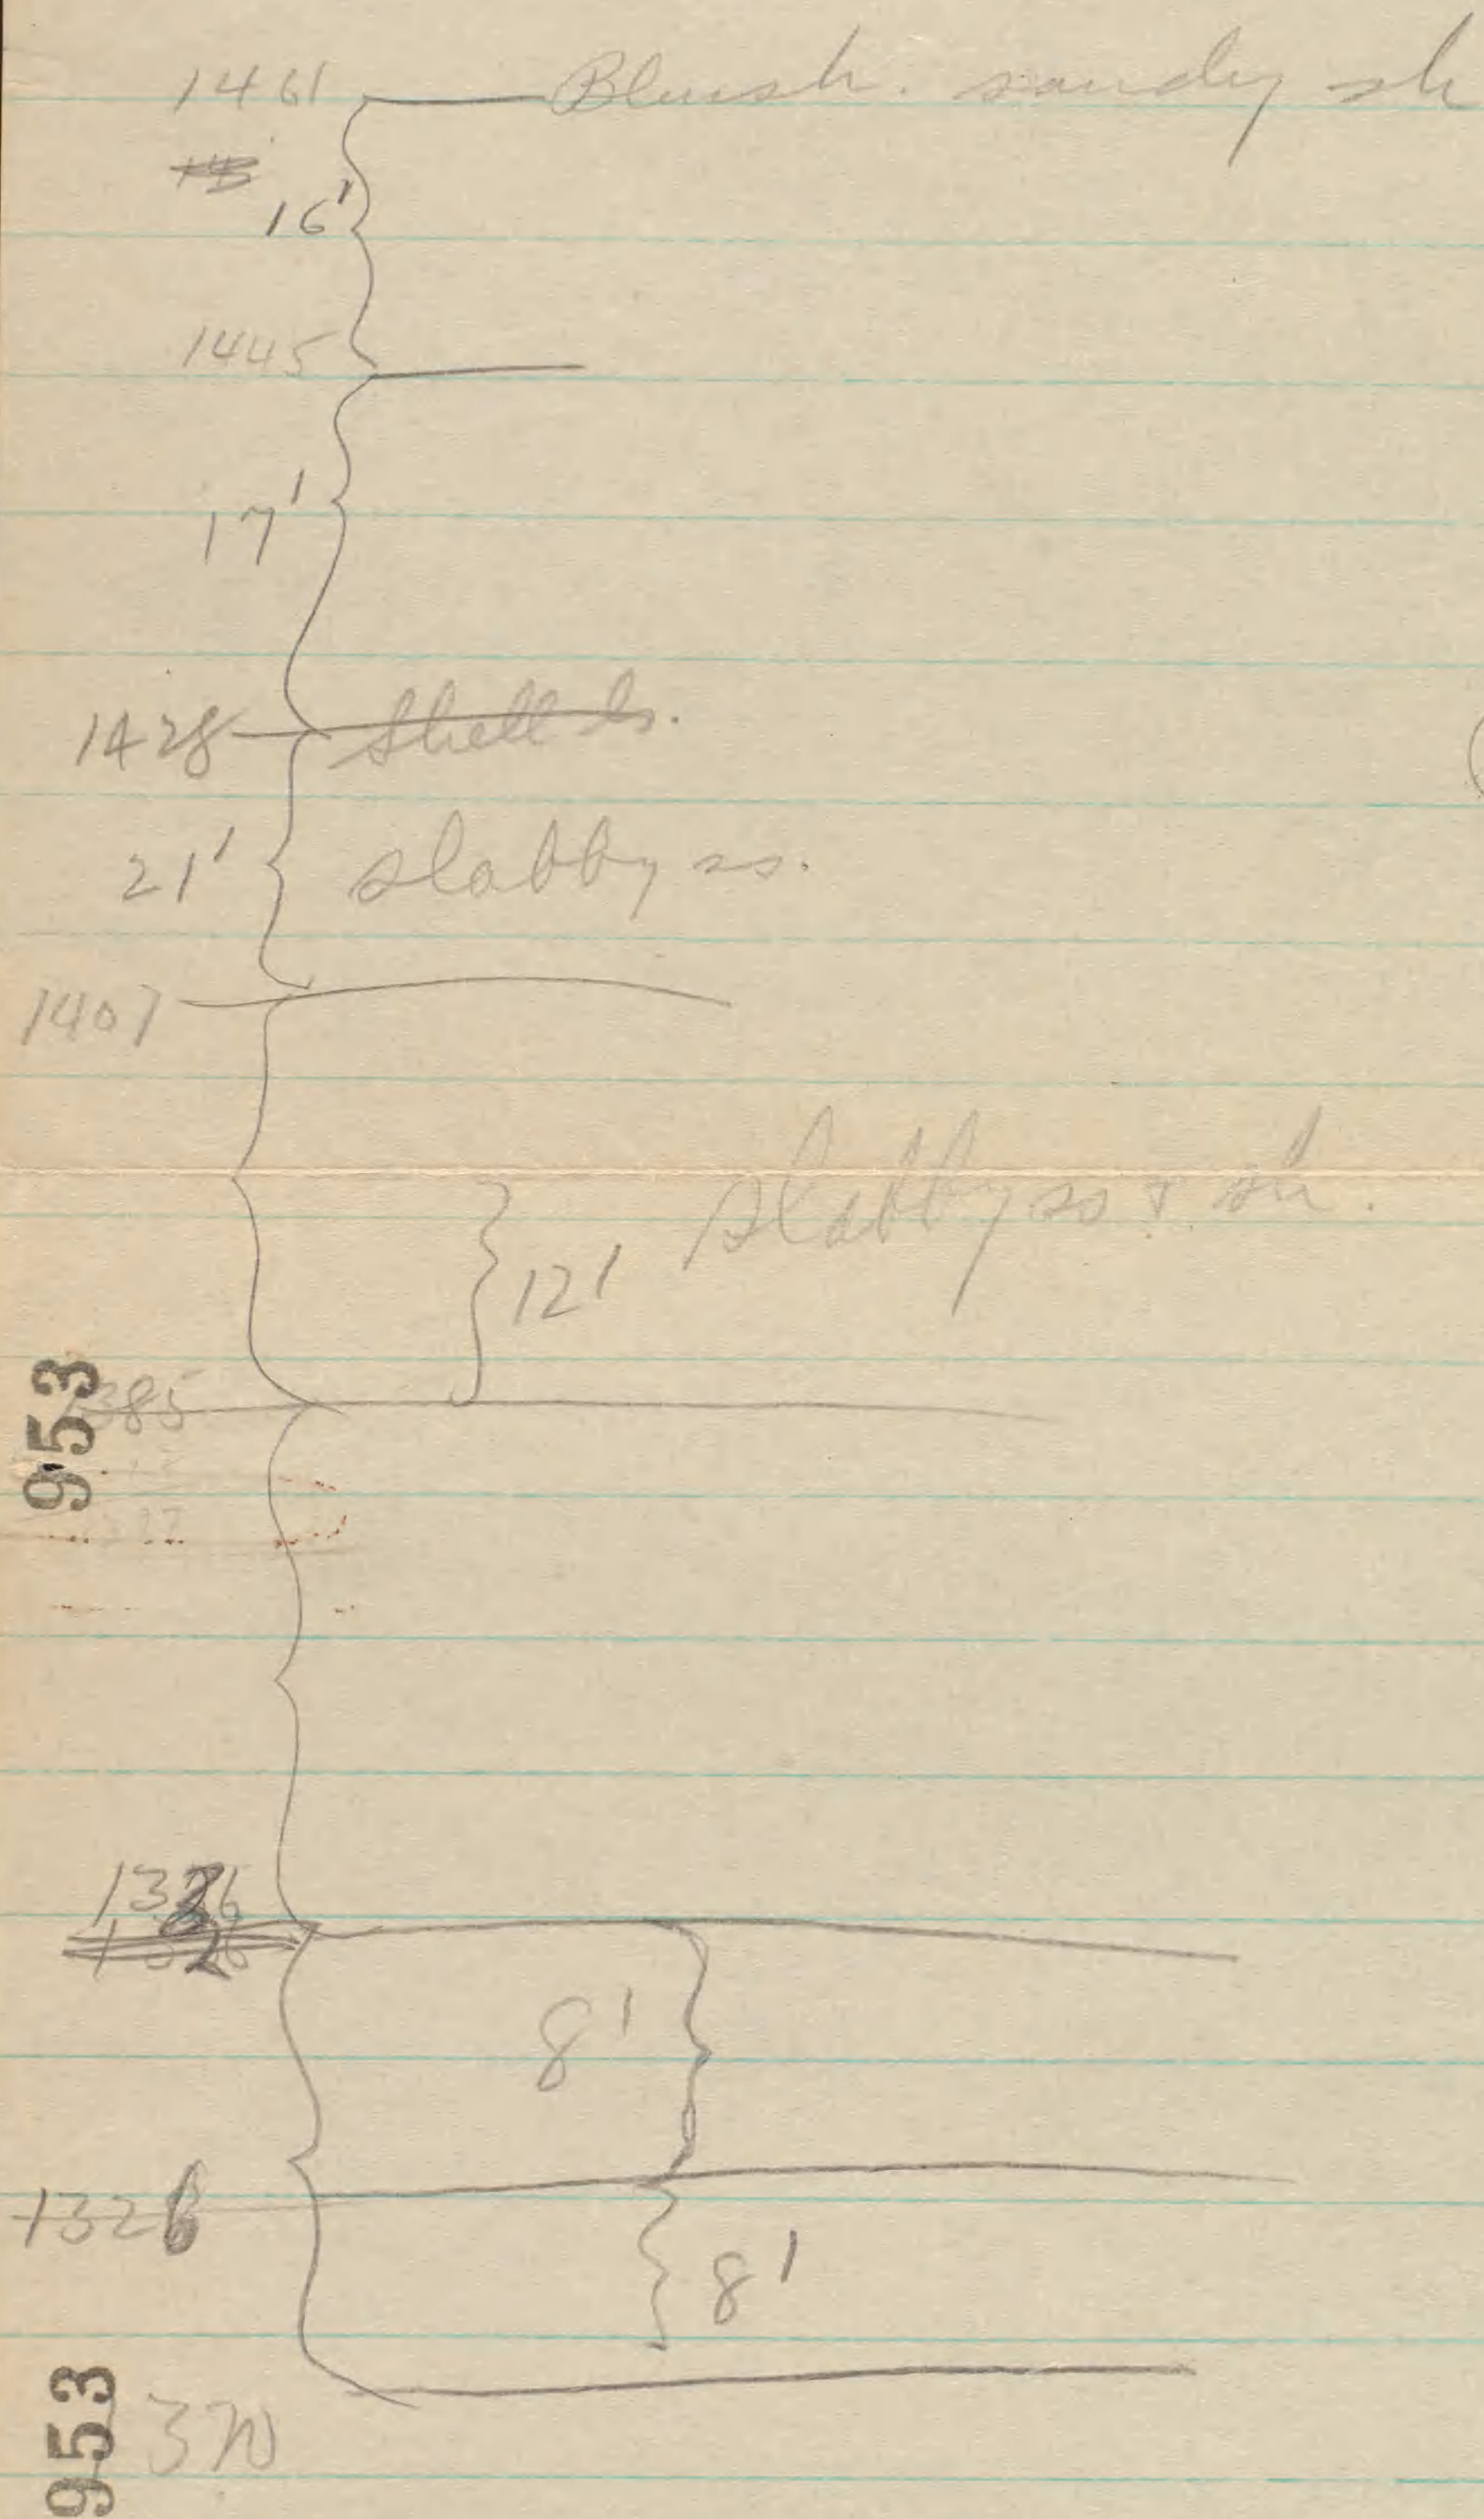 1461 Bluish. sandy sh
16'
1445
17'
1428 Shell ls.
21' slabby ss.
1407
slabby ss & sh.
12'
953
385
8'
132
8'
953